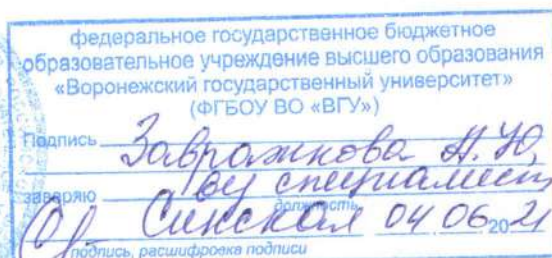 федеральное государственное бюджетное
образовательное учреждение высшего образования
«Воронежский государственный университет»
(ФГБОУ ВО «ВГУ»)
Подпись Завражнова А.Ю.
заверяю специалист
должность
Синская 04 06 2021
подпись, расшифровка подписи